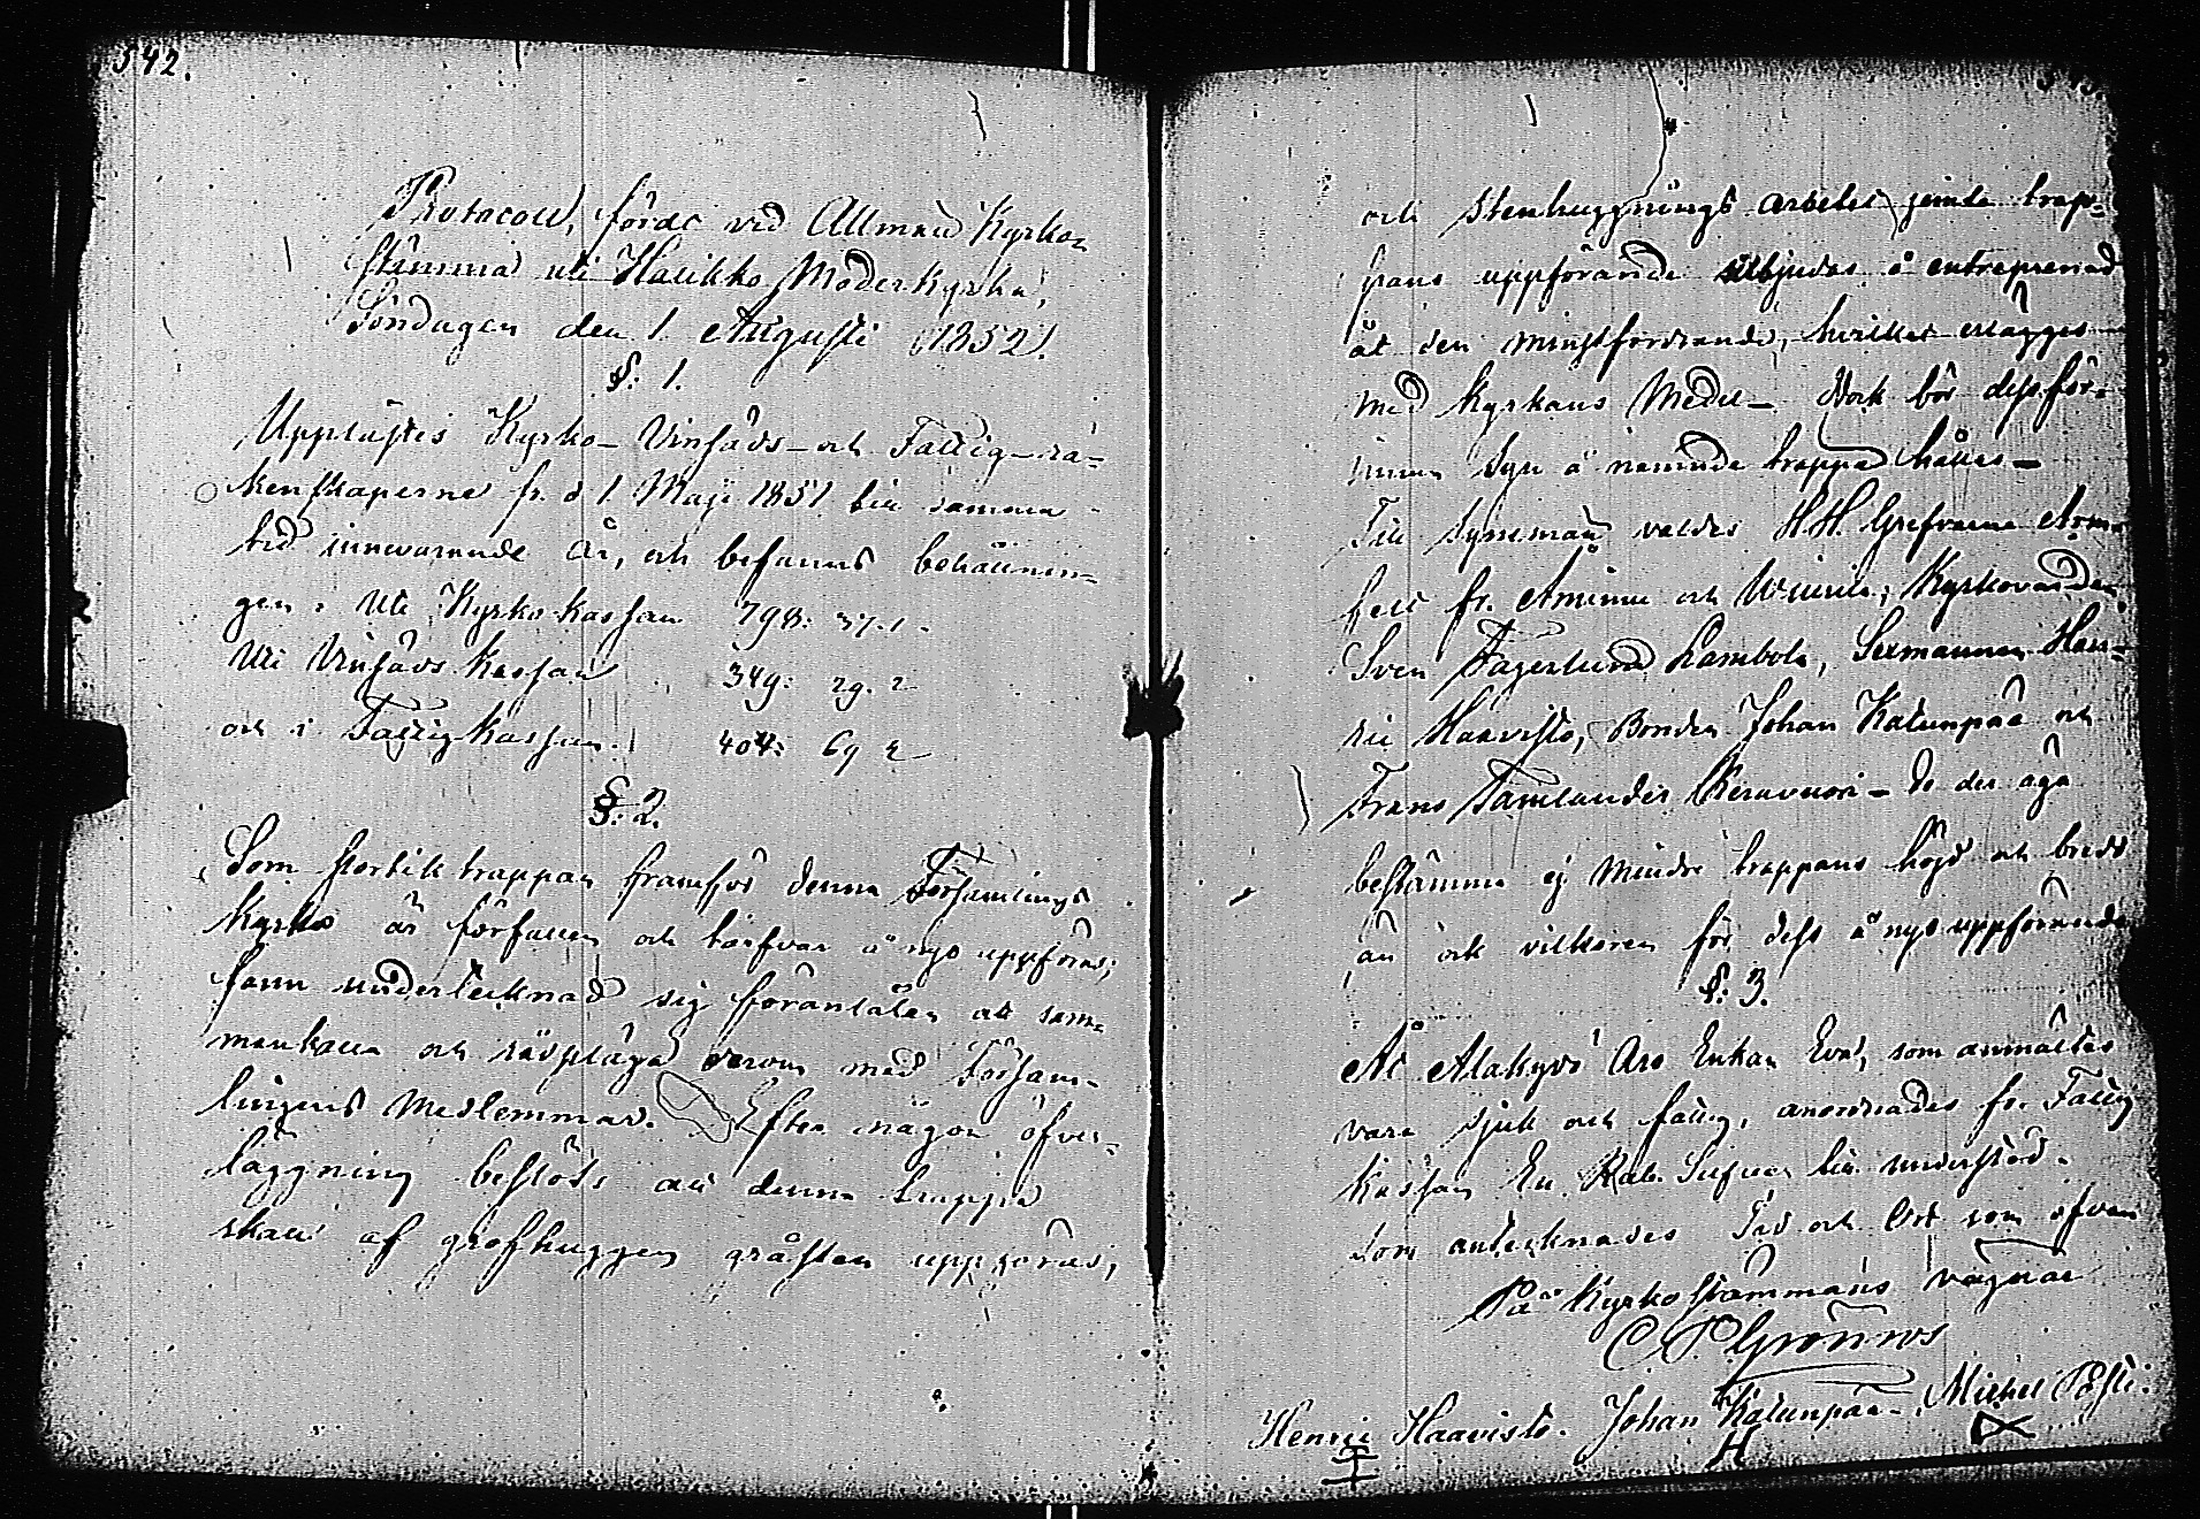 542.
Protocoll, fördt vid Allmän Kyrko-
stämma uti Halikko Moderkyrka,
Söndagen den 1 Augusti 1852.
§. 1.
Upplästes Kyrko- Vinsäds- och Fattig-rä-
kenskaperne fr. d 1 Maji 1851 till samma
tid innevarande År, och befanns behållnin-
gen: Uti Kyrko Kassan 798: 37.1.
Uti Vinsäds Kassan 349: 29. 2
och i Fattig Kassan 404: 69 2
§. 2.
Som trappan framför denna Församlings
Kyrka är förfallen och tarfvar å nyo uppföras;
fann undertecknad sig föranlåten att sam-
mankalla och rådpläga derom med Försam-
lingens Medlemmar. Efter någon öfver-
läggning beslöts att denna trappa
skall af grofhuggen gråsten uppföras,
och Stenhuggnings arbetet jemte trap-
pans uppförande utbjudas å entreprenad
åt den minstfordrande, hvilket
med Kyrkans Medel - Dock bör dessför-
innan Syn å nämnde trappa hålles -
Till Synemän valdes H.H. Grefvarne Arm-
felt fr. Åminne och Wiurila, Kyrkovärden
Sven Fagerlund Rambola, Sexmannen Hen-
ric Haavisto, Bonden Johan Katunpää och
Frans Tamlander Keravuori - De der äga
bestämma ej mindre trappans höjd och bredd
än ock vilkoren för dess å nyo uppförande
§. 3.
Åt Alakyrö Aro Enkan Eva, som anmältes
vara sjuk och fattig, anordnades fr. Fattig
kassan En Rub. Silfver till understöd.
Som antecknades Tid och Ort som ofvan
På Kyrko stämmans vägnar
C P Grönroos
Henric Haavisto. Johan Katunpää. Michel
H